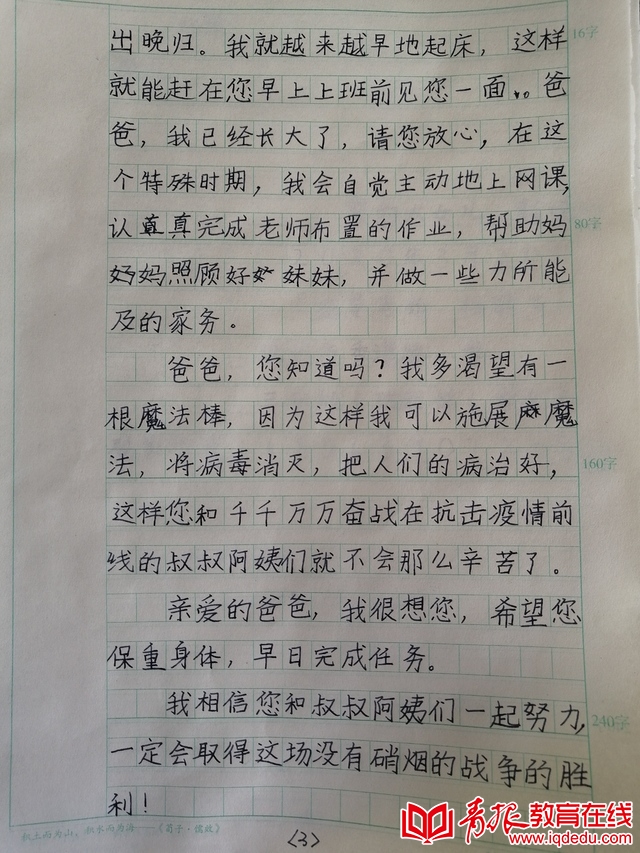 出晚归。我就越来越早地起床，这样
16字
就能赶在您早上上班前见您一面。爸
爸，我已经长大了，请您放心，在这
个特殊时期，我会自觉主动地上网课，
认真真完成老师布置的作业，帮助妈
80字
妈妈照顾好妹妹，并做一些力所能
及的家务。
爸爸，您知道吗？我多渴望有一
根魔法棒，因为这样我可以施展麻魔
法，将病毒消灭，把人们的病治好，
160字
这样您和千千万万奋战在抗击疫情前
线的叔叔阿姨们就不会那么辛苦了。
亲爱的爸爸，我很想您，希望您
保重身体，早日完成任务。
我相信您和叔叔阿姨们一起努力，
240字
一定会取得这场没有硝烟的战争的胜
利！
积土而为山，积水而为海——《荀子·儒效》
<3>
青报教育在线
www.iqdedu.com